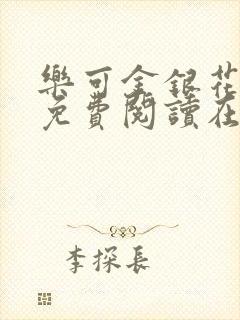 樂可金銀花
免費閱讀在
李探長